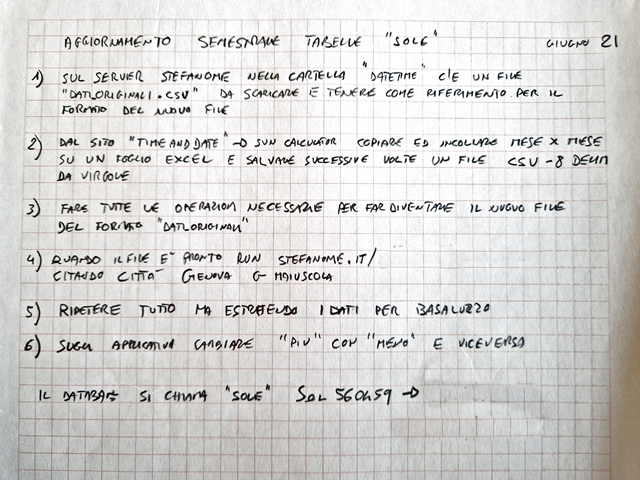 AGGIORNAMENTO SEMESTRALE TABELLE "SOLE" GIUGNO 21
1) SUL SERVER STEFANOME NELLA CARTELLA "DATETIME" C'E UN FILE
"DATI_ORIGINALI.CSV" DA SCARICARE E TENERE COME RIFERIMENTO PER IL
FORMATO DEL NUOVO FILE
2) DAL SITO "TIME AND DATE" → SUN CALCULATOR COPIARE ED INCOLLARE MESE X MESE
SU UN FOGLIO EXCEL E SALVARE SUCCESSIVE VOLTE UN FILE CSV-8 DELIM
DA VIRGOLE
3) FARE TUTTE LE OPERAZIONI NECESSARIE PER FAR DIVENTARE IL NUOVO FILE
DEL FORMATO "DATI_ORIGINALI"
4) QUANDO IL FILE E' PRONTO RUN STEFANOME.IT/
CITANDO CITTA' GENOVA G MAIUSCOLA
5) RIPETERE TUTTO MA ESTRAENDO I DATI PER BASALUZZO
6) SUGLI APPLICATIVI CAMBIARE "PIU" CON "MENO" E VICEVERSA
IL DATABASE SI CHIAMA "SOLE" SOL 560459 →